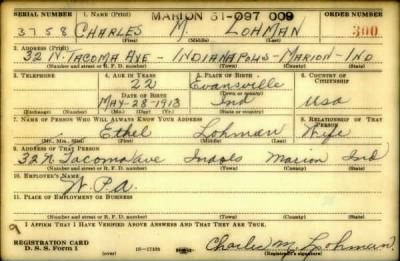 SERIAL NUMBER 1. NAME (Print) MARION 31-097 009 ORDER NUMBER
3758 CHARLES M LOHMAN 300
(First) (Middle) (Last)
2. ADDRESS (Print)
32 N. TACOMA AVE - INDIANAPOLIS - MARION - IND
(Number and street or R. F. D. number) (Town) (County) (State)
3. TELEPHONE 4. AGE IN YEARS 5. PLACE OF BIRTH 6. COUNTRY OF CITIZENSHIP
22 Evansville
DATE OF BIRTH (Town or county)
MAY-28-1913 Ind USA
(Exchange) (Number) (Mo.) (Day) (Yr.) (State or country)
7. NAME OF PERSON WHO WILL ALWAYS KNOW YOUR ADDRESS 8. RELATIONSHIP OF THAT PERSON
Ethel Lohman Wife
(Mr., Mrs., Miss) (First) (Middle) (Last)
9. ADDRESS OF THAT PERSON
32 N Tacoma Ave Indpls Marion Ind
(Number and street or R. F. D. number) (Town) (County) (State)
10. EMPLOYER'S NAME
W.P.A.
11. PLACE OF EMPLOYMENT OR BUSINESS
(Number and street or R. F. D. number) (Town) (County) (State)
I AFFIRM THAT I HAVE VERIFIED ABOVE ANSWERS AND THAT THEY ARE TRUE.
REGISTRATION CARD
D. S. S. Form 1 Charles M. Lohman
(Registrant's signature)